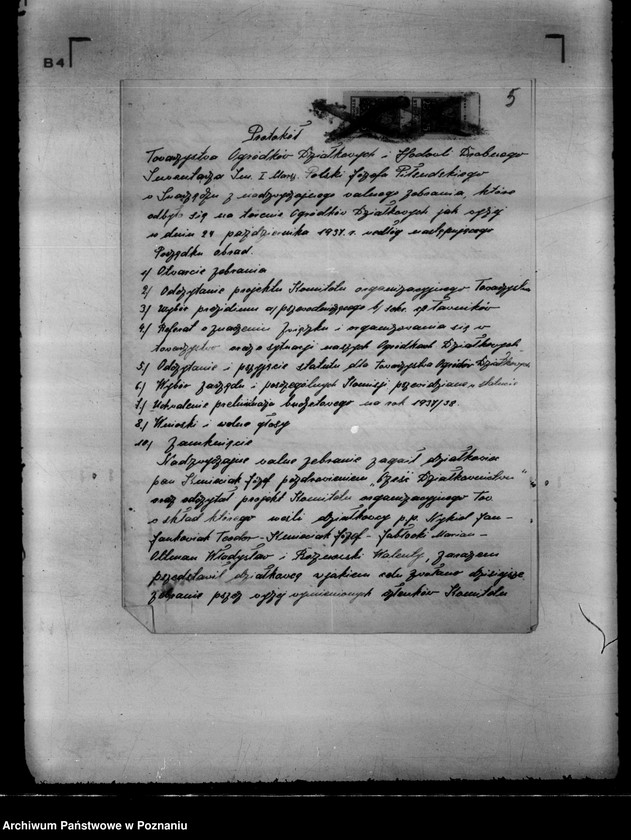 B4
5
Protokół
Towarzystwa Ogródków Działkowych i Hodowli Drobnego
Inwentarza Im. I Marsz. Polski Józefa Piłsudskiego
z nadzwyczajnego walnego zebrania, które
odbyło się na terenie Ogródków Działkowych jak wyżej
w dniu 24 października 1937 r. według następującego
Porządku obrad.
1/ Otwarcie zebrania
2/ Odczytanie projektu Komitetu organizacyjnego Towarzystwa
3/ Wybór prezydium a/ przewodniczącego b/ sekr. c/ ławników
4/ Referat o znaczeniu związku i organizowania się w
towarzystwo oraz o sytuacji naszych Ogródków Działkowych
5/ Odczytanie i przyjęcie statutu dla Towarzystwa Ogródków Działkowych
6/ Wybór zarządu i poszczególnych Komisji przewidziane w statucie
7/ Uchwalenie preliminarza budżetowego na rok 1937/38.
8/ Wnioski i wolne głosy
10/ Zamknięcie
Nadzwyczajne walne zebranie zagaił działkowiec
pan Józef pozdrowieniem "Cześć Działkownictwu"
oraz odczytał projekt Komitetu organizacyjnego Tow
o skład którego weszli działkowcy p.p. Nykiel Jan -
Jankowiak Teodor - Józef - Jabłocki Marian -
Altman Władysław i Walenty, zarazem
przedstawił działkowcą w jakiem celu zwołano dzisiejsze
zebranie przez wyżej wymienionych członków Komitetu
Archiwum Państwowe w Poznaniu